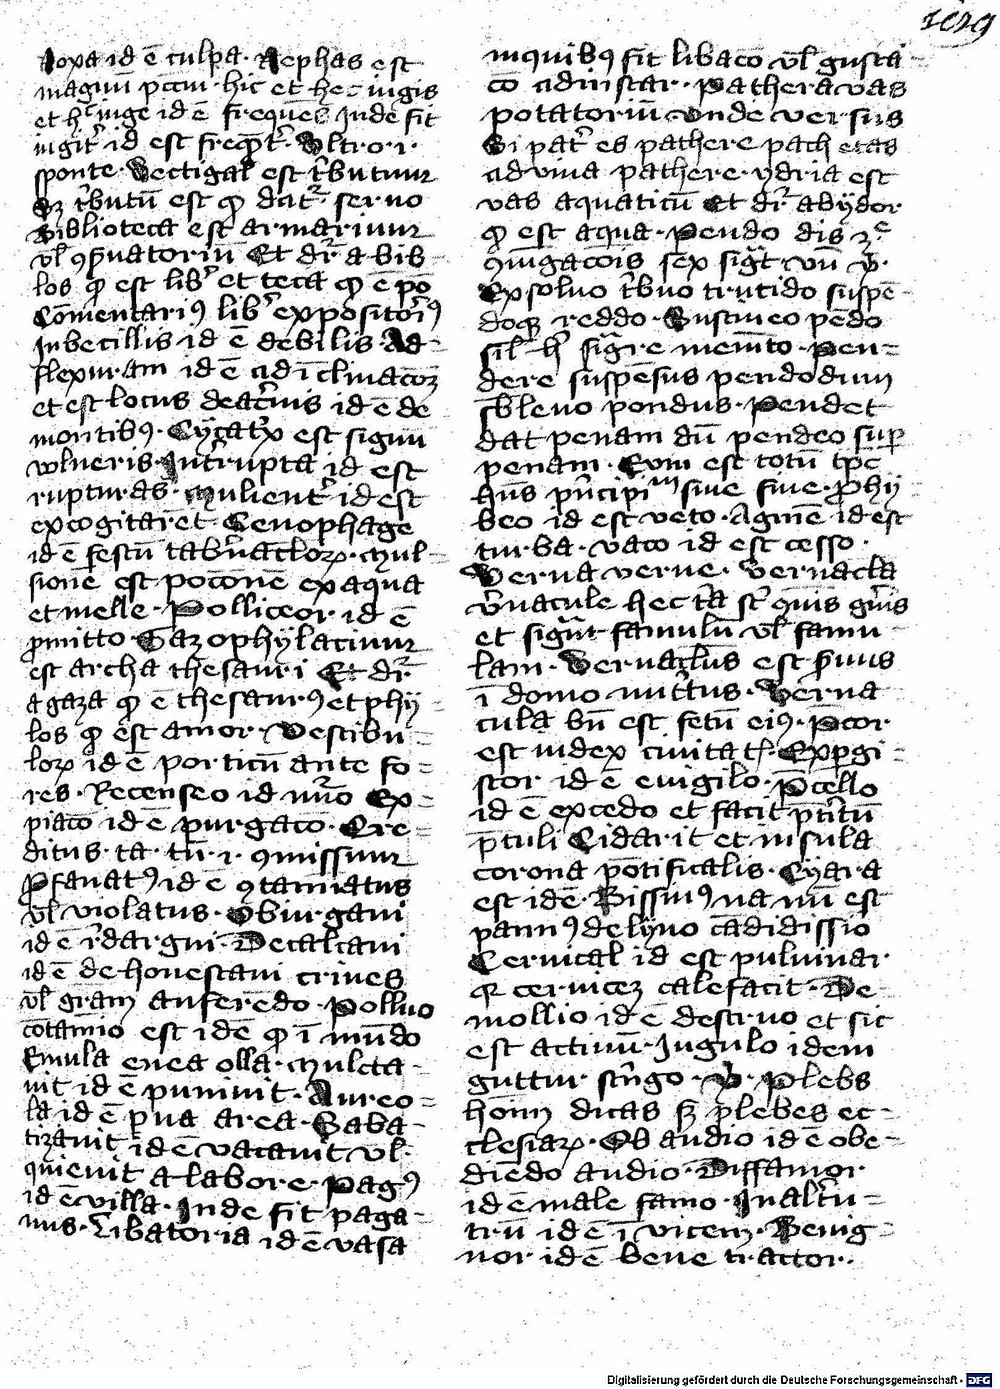 109
Noxa id ē culpa. Nephas est
magnū pctm. hic et hec iugis
et hͨ iuge id ē frequēs Jnde fit
iugit̄ id est freqēt̄. Vltro .i.
sponte. Vectigal est t̄butum
Sꝫ t̄butū est qđ dat᷑. seruo
Biblioteca est armarium
vl ꝯseruatoriū Et dr̄ a bib-
los qđ est lib̄ et teca qđ ē po
Cōmentariꝰ lib̄ expositoriꝰ
Jnbecillis id ē debilis. Ad-
flexuram id ē ad īclinacoꝫ
et est locus decliuis id ē de
montibꝰ. Cygat̄x est signū
vulneris. Jnt̄rupta id est
rupturas. Mulient̄ id est
excogitaret Cenophage
id ē festū tab̄nacloꝝ. Mul-
sione est pocōne ex aqua
et melle. Polliceor. id ē
ꝓmitto. Gazophylacium
est archa thesauri Et dr̄
a gaza qđ ē thesaurꝰ et phy
los qđ est amor. Vestibu-
loꝝ id ē porticū ante fo-
res. Recenseo id nu̅o Ex-
piaco id ē purgaco. Cre-
ditus. ta. tū. i. ꝯmissum
Ꝓfanatꝰ id ē ꝯtamiatus
vl violatus. Obiurgaui
id ē r̄dargui. Decalcaui
id ē dehonestaui crines
vl grām auferēdo. Polluo
cōtamio est idē qđ īmūdo
Emula enea olla. Mulcta-
uit id ē puniuit. Aureo-
la id ē pua area. Saba-
tizauit id ē vacauit vl.
quieuit a labore. Pagꝰ
id ē villa. Jnde fit paga-
nus. Libatoria id ē vasa
inquibꝰ fit libaco vl gusta-
co adinstar. Pathera vas
potatoriū vnde versus
Si pat̄ es pathere pach etas
ad vina pathere. ydria est
vas aquaticū Et dr̄ abydor
qđ est aqua. Pendo dis 2ͤ
ꝯiugacois sex sig̅t vn̄ v̄.
Exsoluo t̄buo trutido suspē-
doqꝫ reddo. Sustineo pēdo
sil h̄ sig̅re memto. Pen-
dere suspēsus pendo dum
s̄bleuo pondus. Pendet
dat penam dū pendeo sup
penam. Eum est totū tpc
hn̄s pn̄cipiū siue fine. Phy
beo id est veto. Agmē id est
turba. vaco id est cesso.
Verna verne. Vernacla
v̄nacule hec t̄a st̄ quis gn̄is
et sig̅t famulū vl famu-
lam. Vernaclus est ꝑuus
ī domo nut̄tus. Verna-
cula bn̄ est fetū eiꝰ. P̄cor
est iudex ciuitatꝭ. Expgi-
scor id ē euigilo. P̄cello
id ē excedo et facit p̄titū
p̄tuli Cidarit et insula
corona pōtificalis. Cyara
est idē. Bissinꝰ na nū est
pannꝰ de lyno cādidissio
Ceruical id est puluinar
qꝛ ceruicez calefacit. De-
mollio id ē destruo et sic
est actiuū. Jugulo idem
guttur stn̄go. v̄. Plebs
hoīm dicas sꝫ plebes ec-
clesiaꝝ. Obaudio id ē obe-
diēdo audio. Diffamor
id ē male famo. Jnalt̄u-
trū id ē ī vicem. Benig-
nor id ē bene tractor.
Digitalisierung gefördert durch die Deutsche Forschungsgemeinschaft - DFG